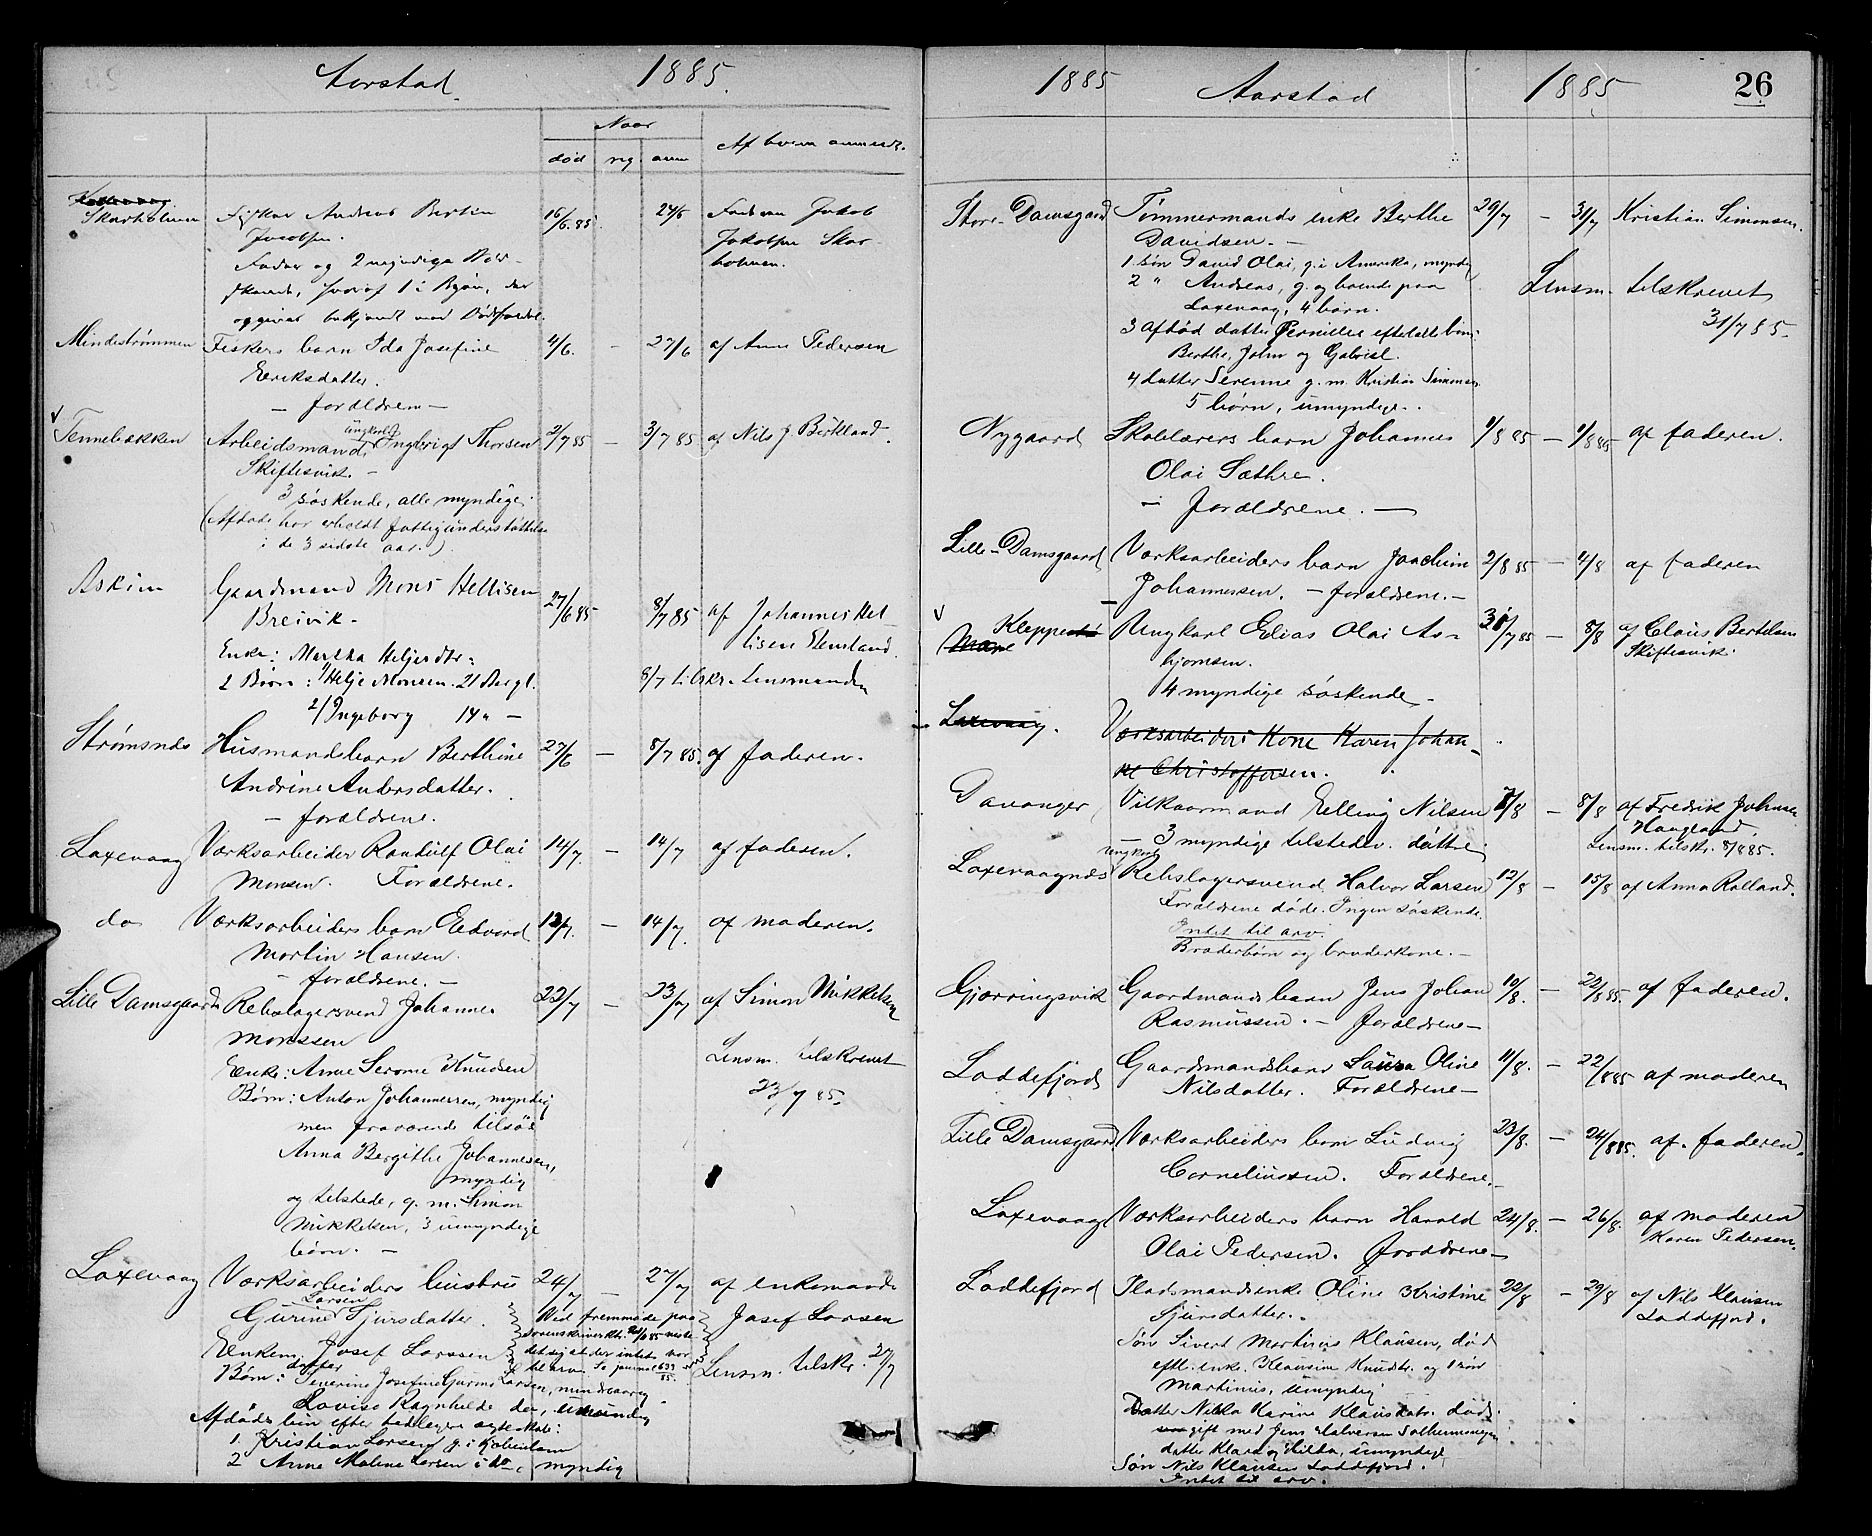 Aarstad 1885.
Naar
død reg anm Af hvem anmeldt.
Skarholmen Fisker Andreas Bertin 16/6.85. 24/6 Faderen Jakob
Jacobsen. Jakobsen Skar-
Fader og 2 myndige holmen.
hvoraf 1 i Byen, der
opgives bekjendt med Dødsfaldet.
Mindestrømmen Fiskers barn Ida Josefine 4/6. — 27/6 af Anne Pedersen
Eriksdatter.
— forældrene —
Tennebækken Arbeidsmand, ungkarl Ingbrigt Thorsen 2/7 85 — 3/7 85 af Nils J. Birkland.
Skiftesvik. —
3 søskende, alle myndige.
(Afdøde har erholdt fattigunderstøttelse
i de 3 sidste aar.)
Askim Gaardmand Mons Hellisen 27/6 85 8/7 85 af Johannes Hel-
Breivik. lisen
Enke: Martha Heljesdtr:
2 Børn: 1/ Helje Monsen. 21 Aar gl. 8/7 tilskr. Lensmanden
2/ Ingeborg 14 " —
Strømsnds Husmandsbarn Berthine 27/6 — 8/7 85. af faderen.
Andrine Andersdatter.
— forældrene.
Laxevaag Værksarbeider Randulf Olai 14/7. — 14/7 af faderen.
Monsen. Forældrene.
do Værksarbeiders barn Edvard 13/7. — 14/7. af moderen.
Martin Hansen.
— forældrene. —
Lille Damsgaard Rebslagersvend Johannes 22/7 — 23/7 af Simon Mikkelsen
Monssen
Enke: Anne Serene Knudsen Lensm. tilskrevet
Børn: Anton Johannessen, myndig 23/7 85.
men fraværende tilsøs
Anna Bergithe Johannesen,
myndig
og tilstede, g. m. Simon
Mikkelsen, 3 umyndige
børn. —
Laxevaag Værksarbeiders hustru 24/7 — 27/7 af enkemand
Larsen
Gurine Sjursdatter. Ved fremmøde paa Josef Larsen
Enkem. Josef Larssen
datter
Børn: Severine Josefine Larsen, mindreaarig Lensm. tilskr. 27/7
Lovise Ragnhilde do, umyndig
Afdøde børn efter tidligere ægteskab:
1. Kristian Larsen g. i Kjøbenhavn
2 Anne Malene Larsen i do, myndig
1885 Aarstad 1885 26
Store-Damsgaard Tømmermands enke Berthe 29/7 — 31/7 Kristian Simonsen.
Davidsen. —
1 søn David Olai, g. i Amerika, myndig
2 " Andreas, g. og boende paa Lensm. tilskrevet
Laxevaag, 4 børn. 31/7 85.
3 afdød datter Pernilles efterladte børn:
Berthe, John og Gabriel.
4 datter Serenne g. m. Kristian Simonsen
5 børn, umyndige.
Nygaard Skolelærers barn Johannes 1/8 85 — 1/8 85 af faderen.
Olai Sæthre.
— forældrene. —
Lille-Damsgaard Værksarbeiders barn Joachim 2/8 85 — 4/8 af faderen
Johannessen. — forældrene. —
Kleppestø Ungkarl Elias Olai As- 31/7 85 — 8/8 af Claus Bertelsen
bjørnsen. Skiftesvik.
4 myndige søskende —
Laxevaag. Værksarbeiders Kone Karen Johan-
ne Christoffersen.
Davanger Vilkaarmand Elling Nilsen 7/8 — 8/8 af Fredrik Johnsen
Haugland
— 3 myndige tilstedev. døttre Lensm. tilskr. 8/8 85.
ungkarl
Laxevaagnds Rebslagersvend, Halvor Larsen 12/8 — 15/8 af Anna Rolland.
Forældrene døde. Ingen søskende.
Intet til arv.
Broderbørn og broderkone. —
Gjærringsvik Gaardmands barn Jens Johan 10/8. — 22/8 85. af faderen.
Rasmussen. — forældrene —
Loddefjord Gaardsmandsbarn Laura Oline 11/8. — 22/8 85 af moderen
Nilsdatter. Forældrene —
Lille Damsgaard Værksarbeiders barn Ludvig 23/8. — 24/8 85. af faderen.
Corneliussen. Forældrene. —
Laxevaag Værksarbeiders barn Harald 24/8. — 26/8. af moderen
Olai Pedersen. Forældrene — Karen Pedersen.
Loddefjord Pladsmandsenke Oline Kristine 22/8 — 29/8 af Nils Klausen
Sjursdatter. Loddefjord.
Søn Sivert Martinus Klausen, død
eftl. enke. Klausine Knudsdtr. og 1 søn
Martinus, umyndig
Datter Nilka Karine Klausdatr. død
gift med Jens Halversen
datter Klara og Hilda, umyndige
Søn Nils Klausen Loddefjord.
Intet til arv.